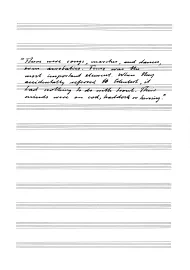 "There were songs, marches, and dances,
some anecdotes. Tunes was the
most important element. When they
accidentally referred to Schubert, it
had nothing to do with trout. Their
minds were on cod, haddock or herring"